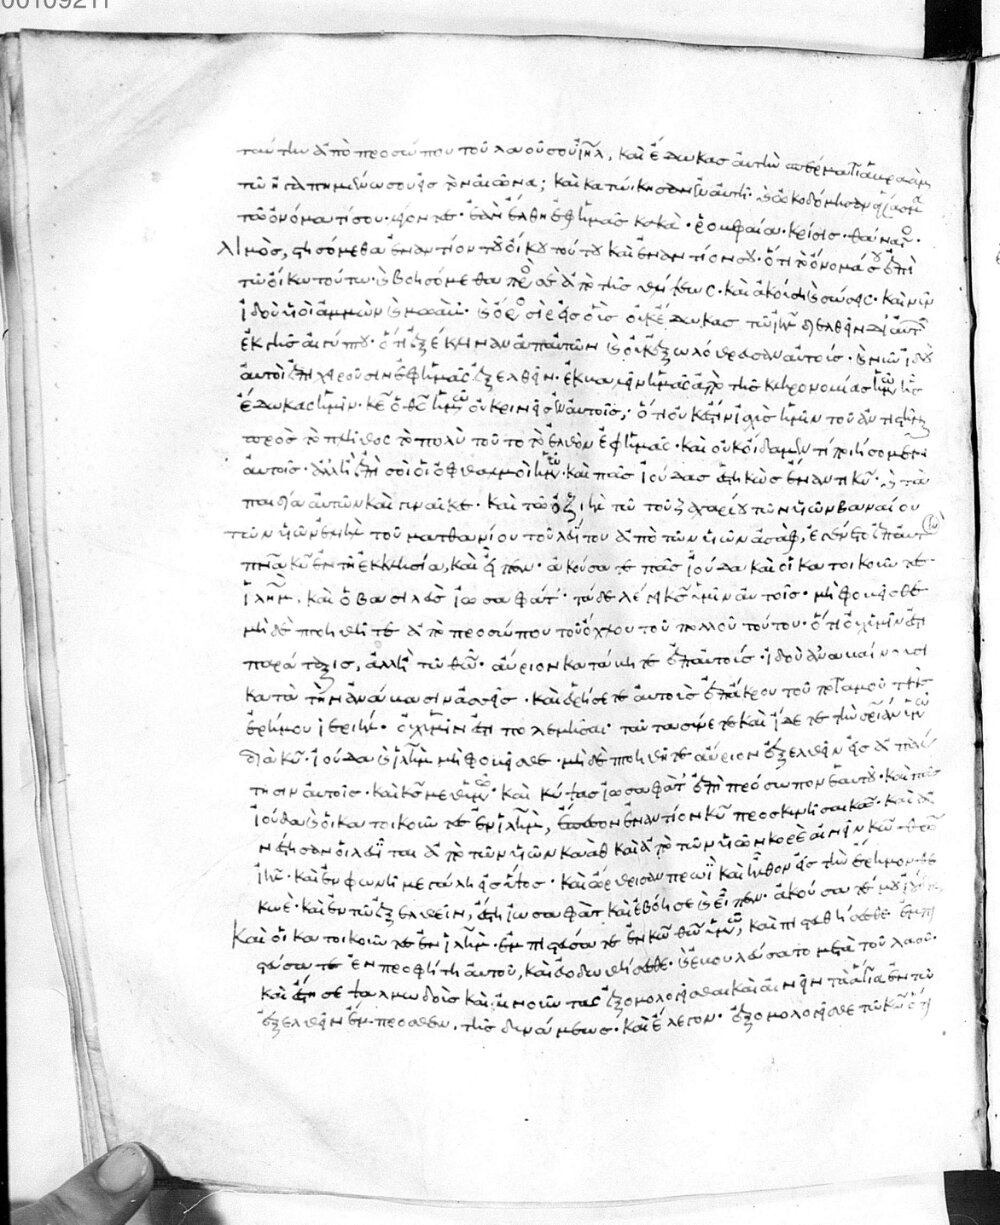 00109211
ταύτην ἀπὸ προσώπου τοῦ λαοῦ σου ἰηλ, καὶ ἔδωκας αὐτὴν σπέρματι ἁβραὰμ
τῶ ἠγαπημένω σου εἰς τὸν αἰῶνα; καὶ κατώκησαν ἐν αὐτῆ· καὶ ὠκοδόμησαν ἁγίασμα
τῶ ὀνόματί σου λέγοντες· ἐὰν ἔλθη ἐφ ἡμᾶς κακὰ· ῥομφαία· κρίσις· θάνατος·
λιμὸς, στησόμεθα ἐναντίον τοῦ οἴκου τούτου καὶ ἐναντίον σου· ὅτι τὸ ὄνομά σου ἐπὶ
τῶ οἴκω τούτω· καὶ βοησόμεθα πρὸς σὲ ἀπὸ τῆς θλίψεως· καὶ ἀκούση καὶ σώσεις· καὶ νῦν
ἰδοὺ υἱοὶ ἀμμὼν καὶ μωὰβ· καὶ ὄρος σιεὶρ εἰς οὓς οὐκ ἔδωκας τῶ ἰηλ διελθεῖν δι αὐτῶν
ἐκ γῆς αἰγύπτου· ὅτι ἐξέκλιναν ἀπ αὐτῶν καὶ οὐκ ἐξωλόθρευσαν αὐτούς· καὶ νῦν ἰδοὺ
αὐτοὶ ἐπιχειροῦσιν ἐφ ἡμᾶς ἐξελθεῖν· ἐκβαλεῖν ἡμᾶς ἀπὸ τῆς κληρονομίας ἡμῶν ἧς
ἔδωκας ἡμῖν· κε ὁ θς ἡμῶν οὐ κρινεῖς ἐν αὐτοῖς; ὅτι οὐκ ἔστιν ἰσχὺς ἡμῖν τοῦ ἀντιστῆναι
πρὸς τὸ πλῆθος τὸ πολὺ τοῦτο τὸ ἐλθὸν ἐφ ἡμᾶς· καὶ οὐκ οἴδαμεν τί ποιήσομεν
αὐτοῖς· ἀλλ ἢ ἐπὶ σοὶ οἱ ὀφθαλμοὶ ἡμῶν· καὶ πᾶς ἰούδας ἑστηκὼς ἔναντι κυ· καὶ τὰ
παιδία αὐτῶν καὶ γυναῖκες· καὶ τῶ ὀζιὴλ τῶ τοῦ ζαχαρίου τῶν υἱῶν βαναίου
τῶν υἱῶν ἐλεὴλ τοῦ ματθανίου τοῦ λευίτου ἀπὸ τῶν υἱῶν ἀσὰφ, ἐγένετο ἐπ αὐτὸν
πνα κυ ἐν τῆ ἐκκλησία, καὶ εἶπεν· ἀκούσατε πᾶς ἰούδα καὶ οἱ κατοικοῦντες
ἰλημ, καὶ ὁ βασιλεὺς ἰωσαφάτ· τάδε λέγει κς ὑμῖν αὐτοῖς· μὴ φοβεῖσθε
μὴ δὲ πτοηθῆτε ἀπὸ προσώπου τοῦ ὄχλου τοῦ πολλοῦ τούτου· ὅτι οὐχ ὑμῖν ἐστὶν
παράταξις, ἀλλ ἢ τῶ θω· αὔριον κατάβητε ἐπ αὐτούς· ἰδοὺ ἀναβαίνουσι
κατὰ τὴν ἀνάβασιν ἀσσεῖς· καὶ εὑρήσετε αὐτοὺς ἐπ ἄκρου τοῦ ποταμοῦ τῆς
ἐρήμου ἱεριήλ· οὐχ ὑμῖν ἐστὶ πολεμῆσαι· ταῦτα σύνετε καὶ ἴδετε τὴν σριαν ὑμῶν
διὰ κυ· ἰούδα καὶ ἰλημ μὴ φοβεῖσθε· μὴ δὲ πτοηθῆτε αὔριον ἐξελθεῖν εἰς ἀπάν
τησιν αὐτοῖς· καὶ κς μεθ ὑμῶν· καὶ κύψας ἰωσαφὰτ ἐπὶ πρόσωπον ἑαυτοῦ· καὶ πᾶς
ἰούδα καὶ οἱ κατοικοῦντες ἐν ἰλημ, ἔπεσον ἐναντίον κυ προσκυνῆσαι κω· καὶ ἀ
νέστησαν οἱ λευῖται ἀπὸ τῶν υἱῶν καὰθ καὶ ἀπὸ τῶν υἱῶν κορὲ αἰνεῖν κω θεῶ
ἰηλ· καὶ ἐν φωνῆ μεγάλη εἰς ὕψος· καὶ ὤρθρισαν πρωῒ καὶ ἦλθον εἰς τὴν ἔρημον θε
κωέ· καὶ ἐν τῶ ἐξελθεῖν, ἔστη ἰωσαφὰτ καὶ ἐβόησε καὶ εἶπεν· ἀκούσατέ μου ἰούδα
καὶ οἱ κατοικοῦντες ἐν ἰλημ· ἐμπιστεύσατε ἐν κω θω ἡμῶν, καὶ πιστευθήσεσθε· ἐμπι
στεύσατε ἐν προφήτη αὐτοῦ, καὶ εὐοδωθήσεσθε· καὶ ἐβουλεύσατο μετὰ τοῦ λαοῦ·
καὶ ἔστησε ψαλμωδοὺς καὶ αἰνοῦντας ἐξομολογεῖσθαι καὶ αἰνεῖν τὰ ἅγια ἐν τῶ
ἐξελθεῖν ἔμπροσθεν, τῆς δυνάμεως· καὶ ἔλεγον· ἐξομολογεῖσθε τῶ κω ὅτι